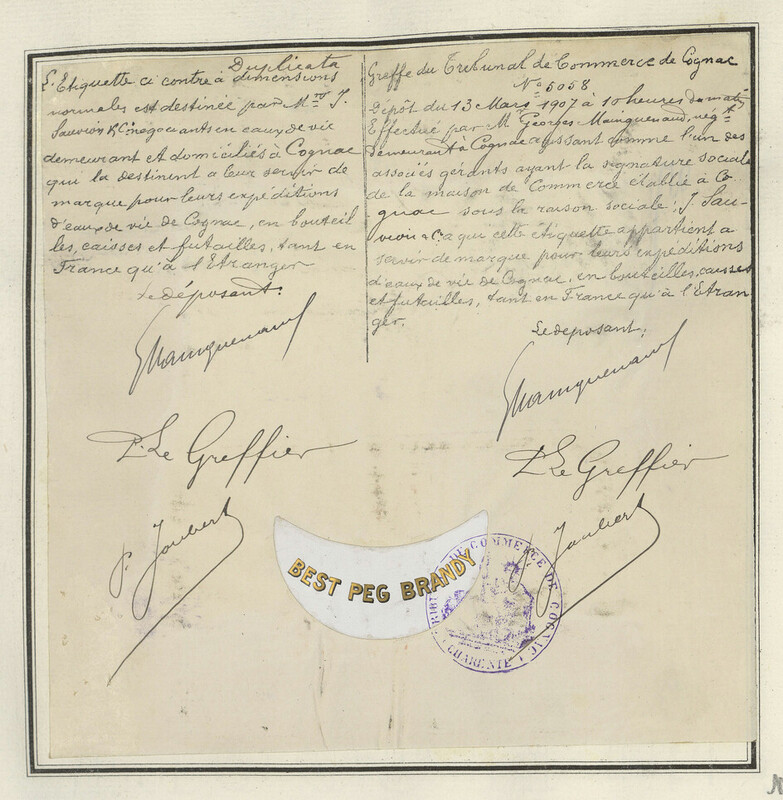 Duplicata
L'Etiquette ci contre à dimensions
normales est destinée par Mrs J.
Sauvion & Cie négociants en eaux de vie
demeurant et domiciliés à Cognac
qui la destinent à leur servir de
marque pour leurs expéditions
d'eaux de vie de Cognac, en bouteil
les, caisses et futailles, tant en
France qu'à l'Etranger
Le déposant.
P. Le Greffier
P. Joubert
Greffe du Tribunal de Commerce de Cognac
No 5058
Dépôt du 13 Mars 1907 à 10 heures du matin
Effectué par Mr Georges Mauquenaud, négt
demeurant à Cognac agissant comme l'un des
associés gérants ayant la signature sociale
de la maison de Commerce établie à Co
gnac sous la raison sociale: J. Sau-
vion & Ce a qui cette étiquette appartient a
servir de marque pour leurs expéditions
d'eaux de vie de Cognac, en bouteilles, caisses
et futailles, tant en France qu'à l'Etran
ger.
Le déposant,
P. Le Greffier
P. Joubert
BEST PEG BRANDY
TRIBUNAL DE COMMERCE DE COGNAC
CHARENTE